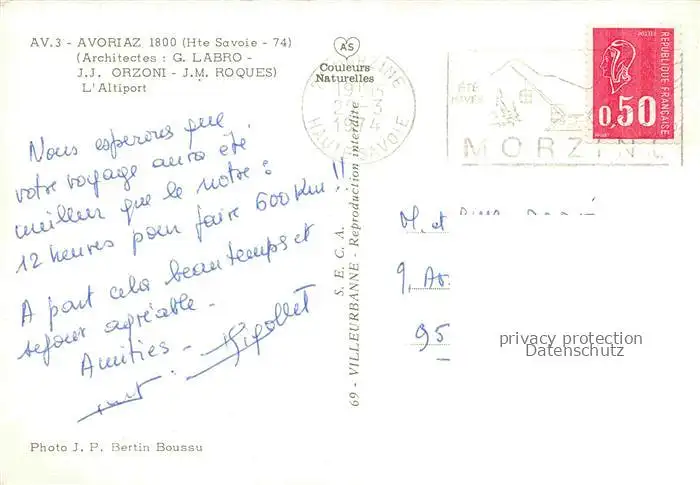 AV.3 - AVORIAZ 1800 (Hte Savoie - 74)
(Architectes : G. LABRO -
J.J. ORZONI - J.M. ROQUES)
L'Altiport
AS
Couleurs
Naturelles
MORZINE
HAUTE-SAVOIE
ÉTÉ
HIVER
MORZINE
POSTES
REPUBLIQUE FRANÇAISE
0,50
Nous esperons que
votre voyage aura été
meilleur que le notre :
12 heures pour faire 600 Km !!
A part cela beau temps et
sejour agréable -
Amitiés -
69 - VILLEURBANNE - Reproduction interdite
S. E. C. A.
M. et
9, Av.
95
privacy protection
Datenschutz
Photo J. P. Bertin Boussu